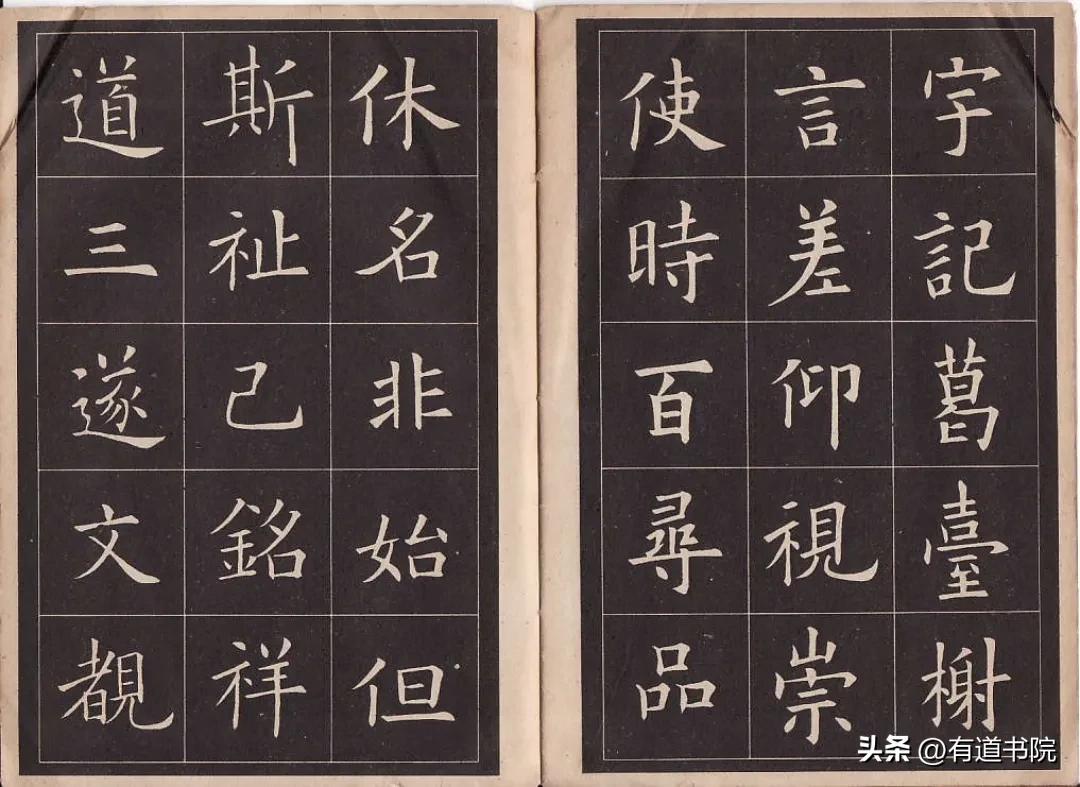 字記葛臺榭
言差仰視崇
使時百尋品
休名非始但
斯祉己銘祥
道三遂文覩
头条 @有道书院